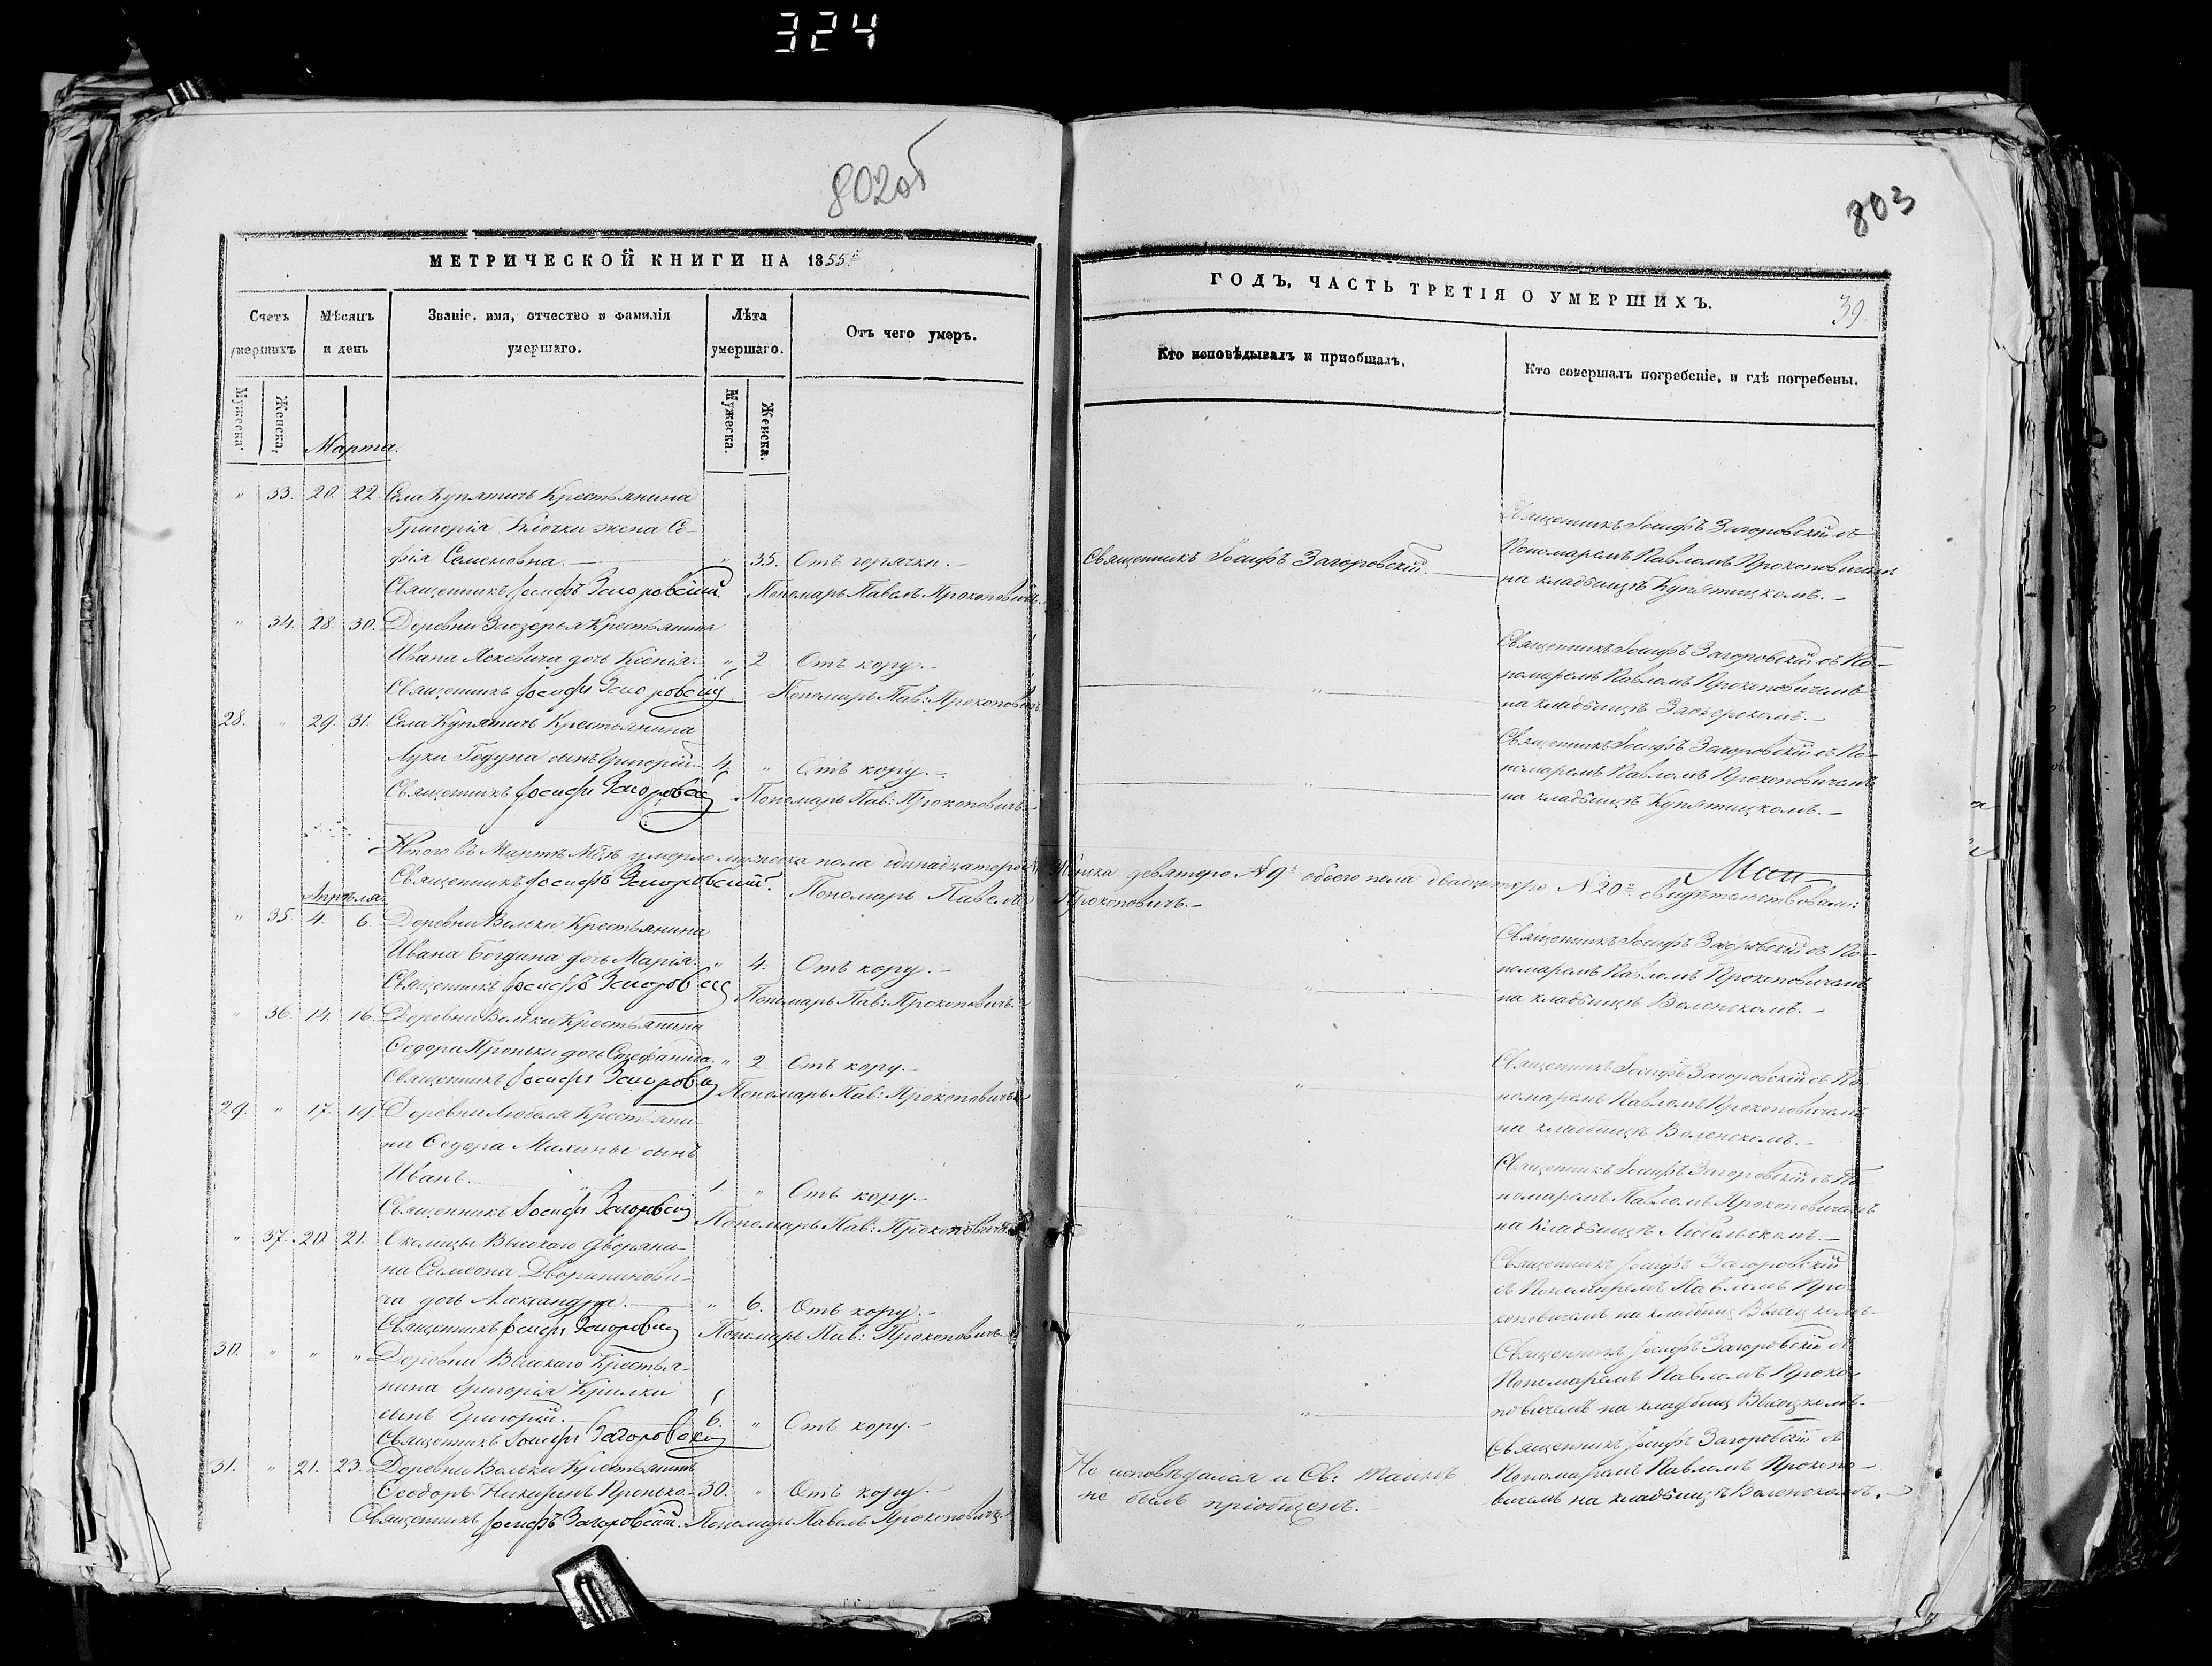 324
802об
МЕТРИЧЕСКОЙ КНИГИ НА 1855й
Счетъ умершихъ
Мѣсяцъ и день
Званіе, имя, отчество и фамилія умершаго.
Лѣта умершаго.
Отъ чего умеръ.
Мужеска.
Женска.
Мужеска.
Женска.
Марта.
" 33. 20. 22. Села Купятичъ Крестьянина
Григорія Клочки жена Со-
фія Семеновна. " 35. Отъ горячки.
Священникъ Іосифъ Загоровскій. Пономарь Павелъ Прокоповичъ.
" 34. 28. 30. Деревни Заозерья Крестьянина
Ивана Яскевича дочь Ксенія. " 2. Отъ кору.
Священникъ Іосифъ Загоровскій Пономарь Пав: Прокоповичъ.
28. " 29. 31. Села Купятичъ Крестьянина
Луки Годуна сынъ Григорій. 4. " Отъ кору.
Священникъ Іосифъ Загоровскій Пономарь Пав: Прокоповичъ.
Итого въ Мартѣ Мцѣ умерло мужеска пола одинадцатеро
Священникъ Іосифъ Загоровскій. Пономарь Павелъ
Апрѣля.
" 35. 4. 6. Деревни Вольки Крестьянина
Ивана Богдана дочь Марія. " 4. Отъ кору.
Священникъ Іосифъ Загоровскій Пономарь Пав: Прокоповичъ.
" 36. 14. 16. Деревни Вольки Крестьянина
Ѳедора Проньки дочь Стефанида. " 2. Отъ кору.
Священникъ Іосифъ Загоровскій Пономарь Пав: Прокоповичъ
29. " 17. 19. Деревни Любеля Крестьяни-
на Ѳедора Махины сынъ
Иванъ. " 1. " Отъ кору.
Священникъ Іосифъ Загоровскій Пономарь Пав: Прокоповичъ.
" 37. 20. 21. Околицы Высокаго дворяни-
на Симеона Дворанинови-
ча дочь Александра. " 6. Отъ кору.
Священникъ Іосифъ Загоровскій Пономарь Пав: Прокоповичъ.
30. " " " Деревни Высокаго Крестья-
нина Григорія Крилки
сынъ Григорій. 6. " Отъ кору.
Священникъ Іосифъ Загоровскій
31. " 21. 23. Деревни Вольки Крестьянинъ
Ѳеодоръ Пронько. 30. " Отъ кору.
Священникъ Іосифъ Загоровскій. Пономарь Павелъ Прокоповичъ.
803
ГОДЪ, ЧАСТЬ ТРЕТІЯ О УМЕРШИХЪ.
39.
Кто исповѣдывалъ и пріобщалъ.
Кто совершалъ погребеніе, и гдѣ погребены.
Священникъ Іосифъ Загоровскій.
Священникъ Іосифъ Загоровскій съ
Пономаремъ Павломъ Прокоповичемъ
на кладбищѣ Купятицкомъ.
"
Священникъ Іосифъ Загоровскій съ По-
номаремъ Павломъ Прокоповичемъ
на кладбищѣ Заозерскомъ.
"
Священникъ Іосифъ Загоровскій съ По-
номаремъ Павломъ Прокоповичемъ
на кладбищѣ Купятицкомъ.
женска девятеро N 9. обоего пола двадцатеро N 20 свидѣтельствовали:
Прокоповичъ.
"
Священникъ Іосифъ Загоровскій съ По-
номаремъ Павломъ Прокоповичемъ
на кладбищѣ Воленскомъ.
"
Священникъ Іосифъ Загоровскій съ По-
номаремъ Павломъ Прокоповичемъ
на кладбищѣ Воленскомъ.
"
Священникъ Іосифъ Загоровскій съ По-
номаремъ Павломъ Прокоповичемъ
на кладбищѣ Любельскомъ.
"
Священникъ Іосифъ Загоровскій
съ Пономаремъ Павломъ Про-
коповичемъ на кладбищѣ Высоцкомъ.
"
Священникъ Іосифъ Загоровскій съ
Пономаремъ Павломъ Проко-
повичемъ на кладбищѣ Высоцкомъ.
Не исповѣдался и Св: Таинъ
не былъ пріобщенъ.
Священникъ Іосифъ Загоровскій съ
Пономаремъ Павломъ Прокопо-
вичемъ на кладбищѣ Воленскомъ.